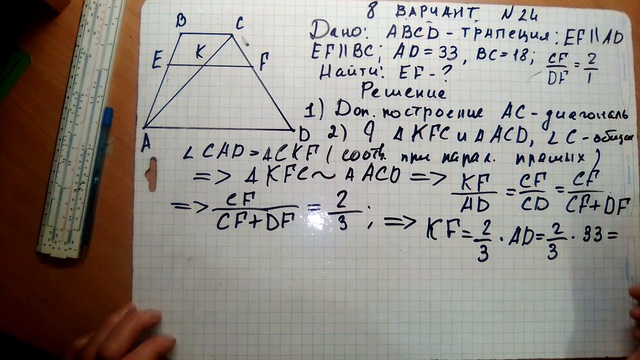 8 ВАРИАНТ N24
Дано: ABCD - трапеция; EF∥AD
EF∥BC; AD=33, BC=18; CF/DF = 2/1
Найти: EF-?
Решение
1) Доп. построение AC-диагональ
2) ΔKFC и ΔACD, ∠C-общий
∠CAD=∠CKF (соотв. при парал. прямых)
=> ΔKFC ~ ΔACD => KF/AD = CF/CD = CF/(CF+DF)
=> CF/(CF+DF) = 2/3; => KF = 2/3 · AD = 2/3 · 33 =
B C
E K F
A D